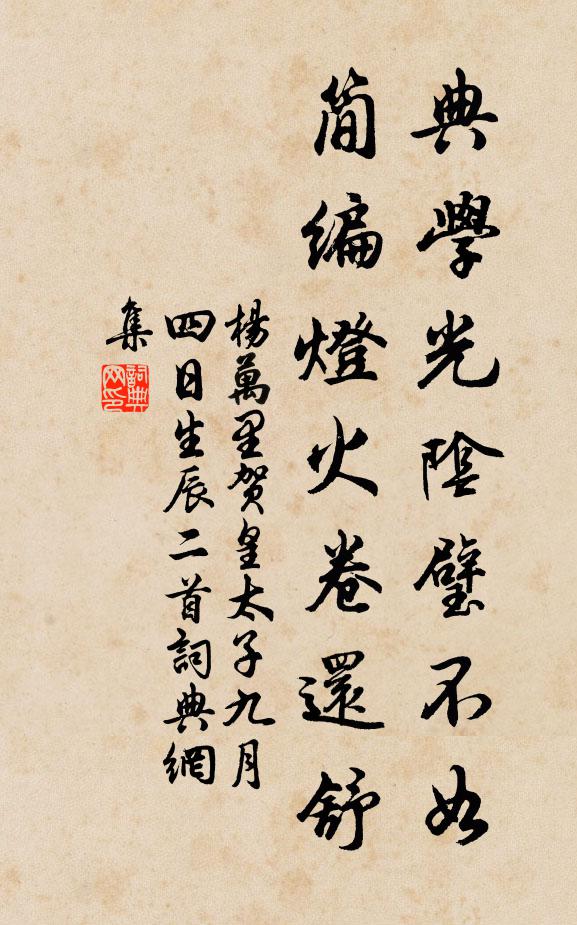 典學光陰璧不如
简編燈火卷還舒
楊萬里贺皇太子九月
四日生辰二首詞典網
集
詞典
网印